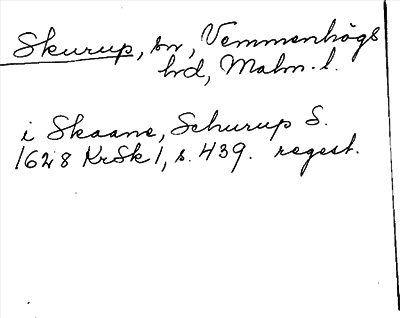 Skurup, sn, Vemmenhögs
hd, Malm. l.
i Skaane, Schurup S.
1628 KrSk 1, s. 439. regest.